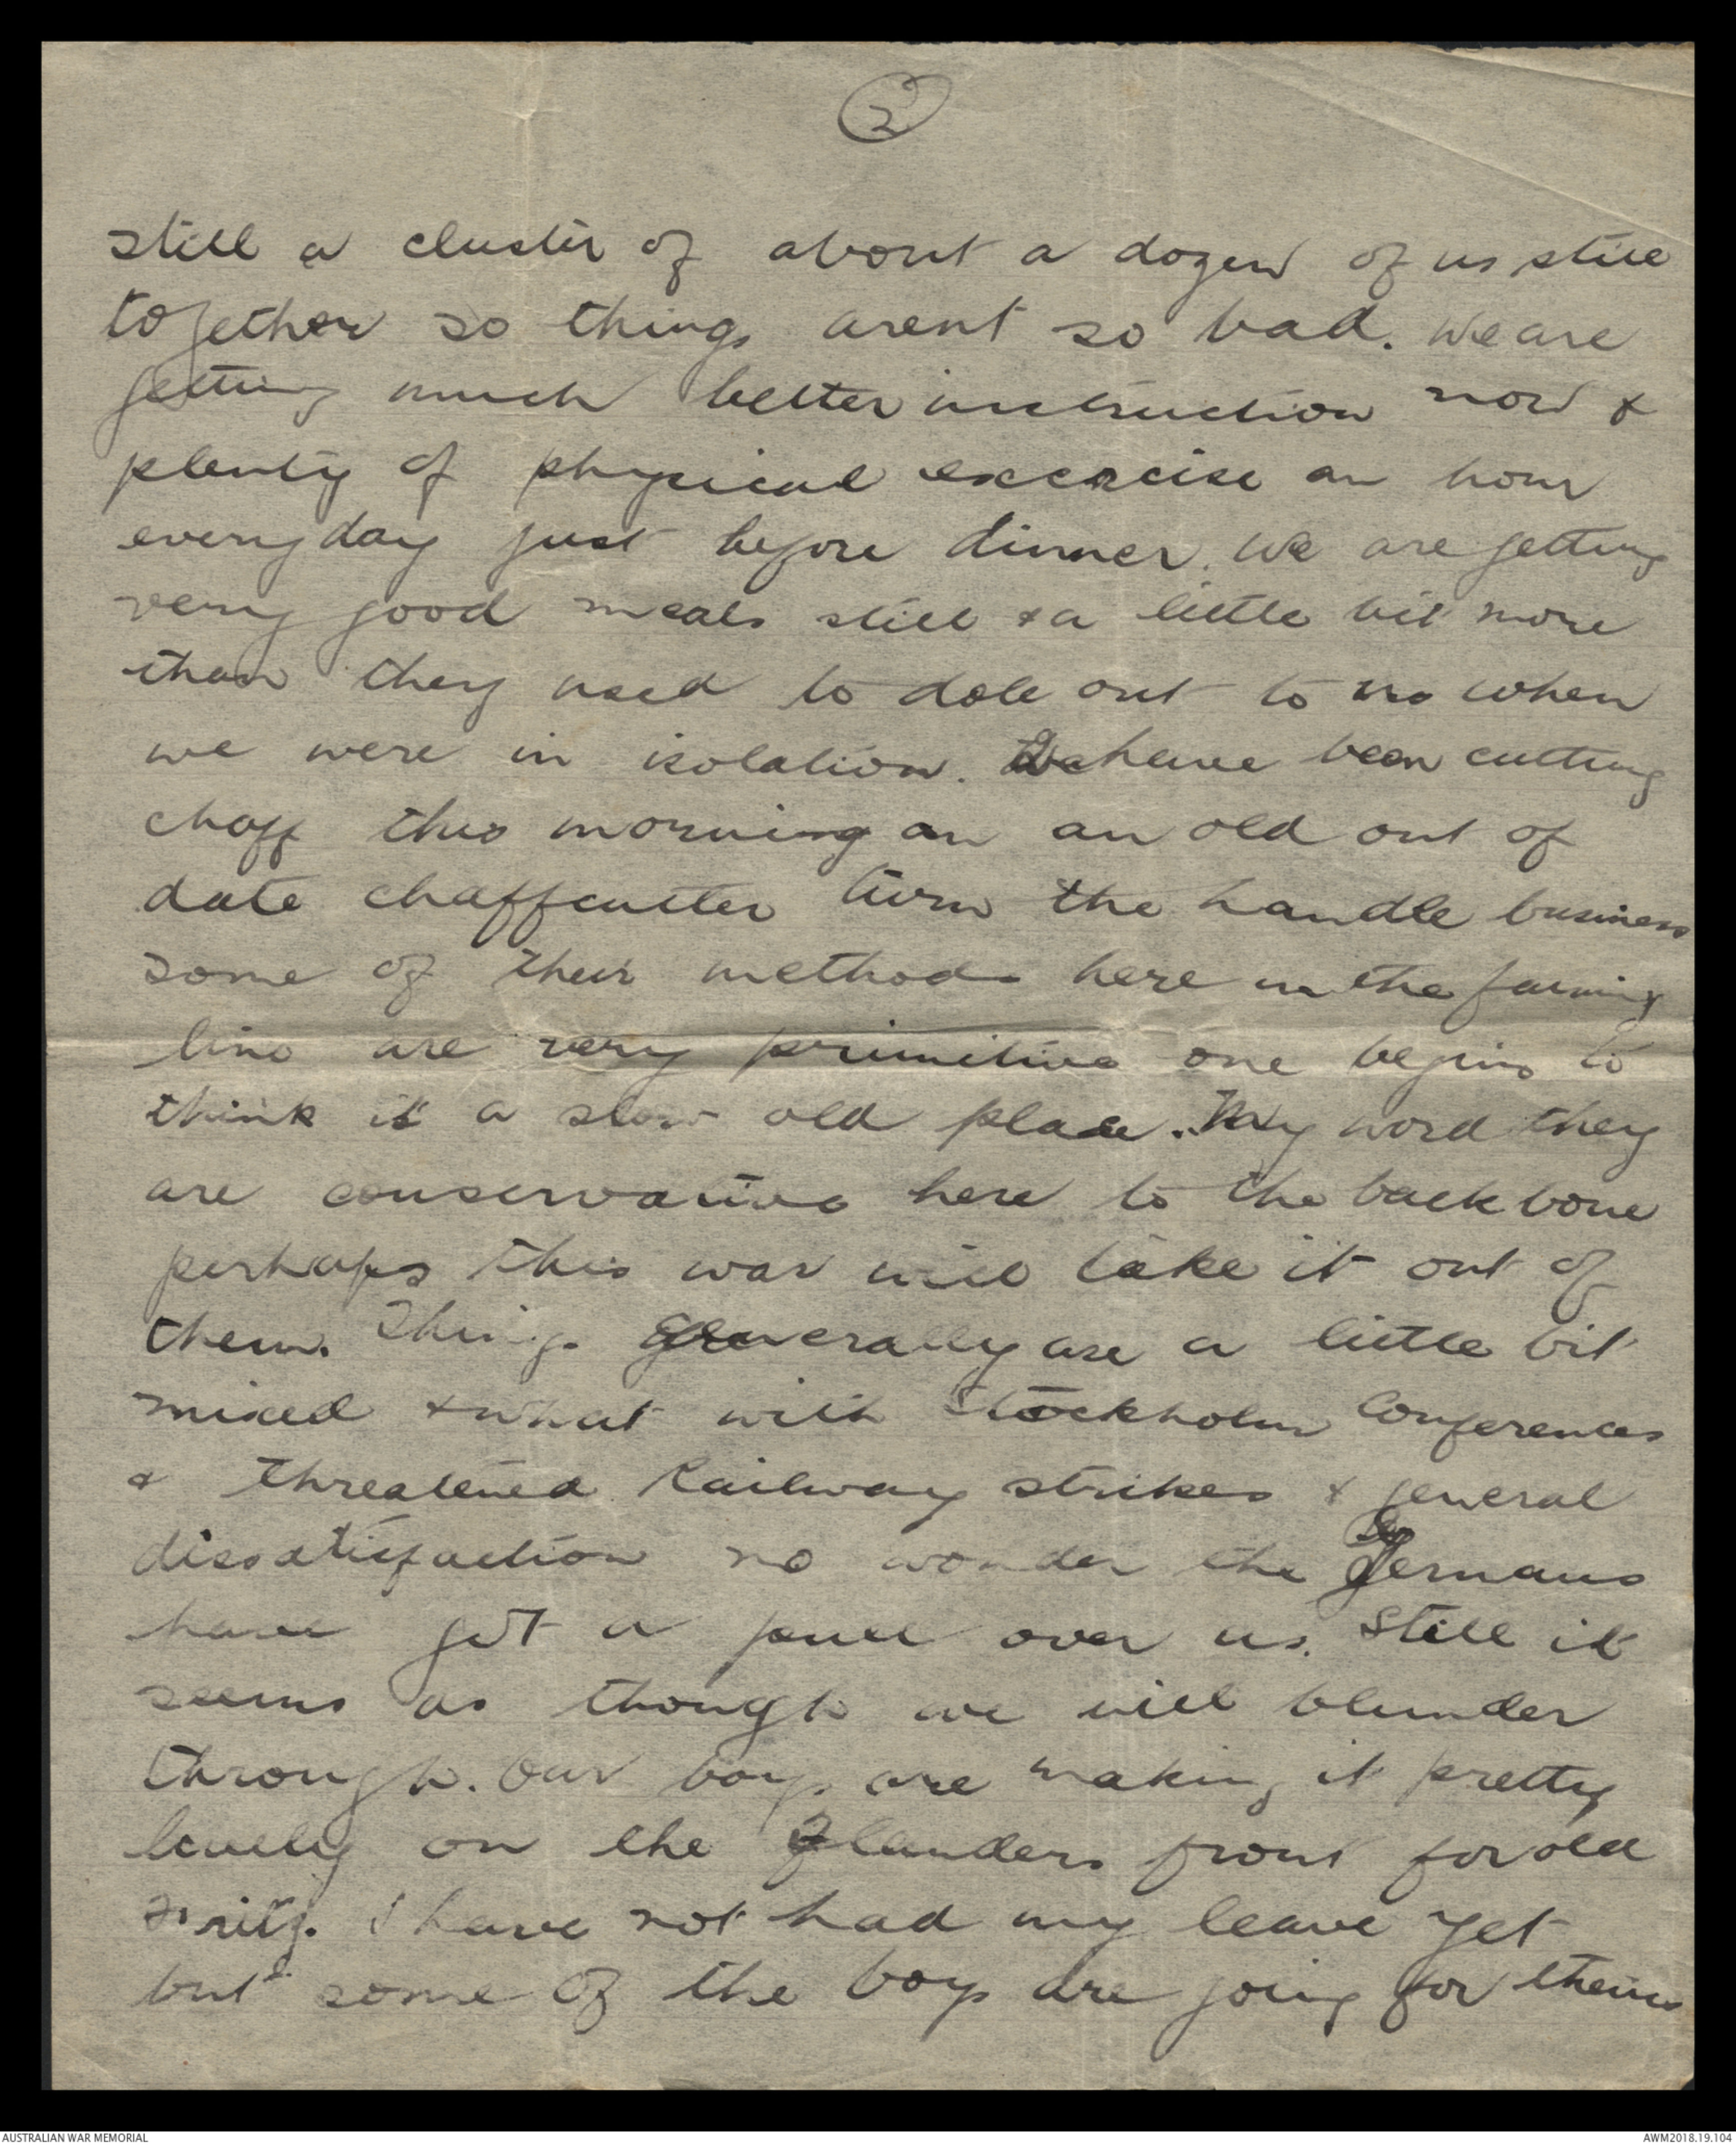 2
still a cluster of about a dozen of us still
together so things arent so bad. We are
getting much better instruction now &
plenty of physical excercise an hour
everyday just before dinner. We are getting
very good meals still & a little bit more
than they used to dole out to us when
we were in isolation. have been cutting
chaff this morning on an old out of
date chaffcutter turn the handle business
some of their methods here in the farming
line are very primitive one begins to
think it a slow old place. My word they
are conservative here to the back bone
perhaps this war will take it out of
them. Things generally are a little bit
mixed & what with Stockholm Conferences
& threatened Railway strikes & general
dissatisfaction no wonder the Germans
have got a pull over us. Still it
seems as though we will blunder
through. Our boys are making it pretty
lively on the Flanders front for old
Fritz. I have not had my leave yet
but some of the boys are going for theirs
AUSTRALIAN WAR MEMORIAL
AWM2018.19.104